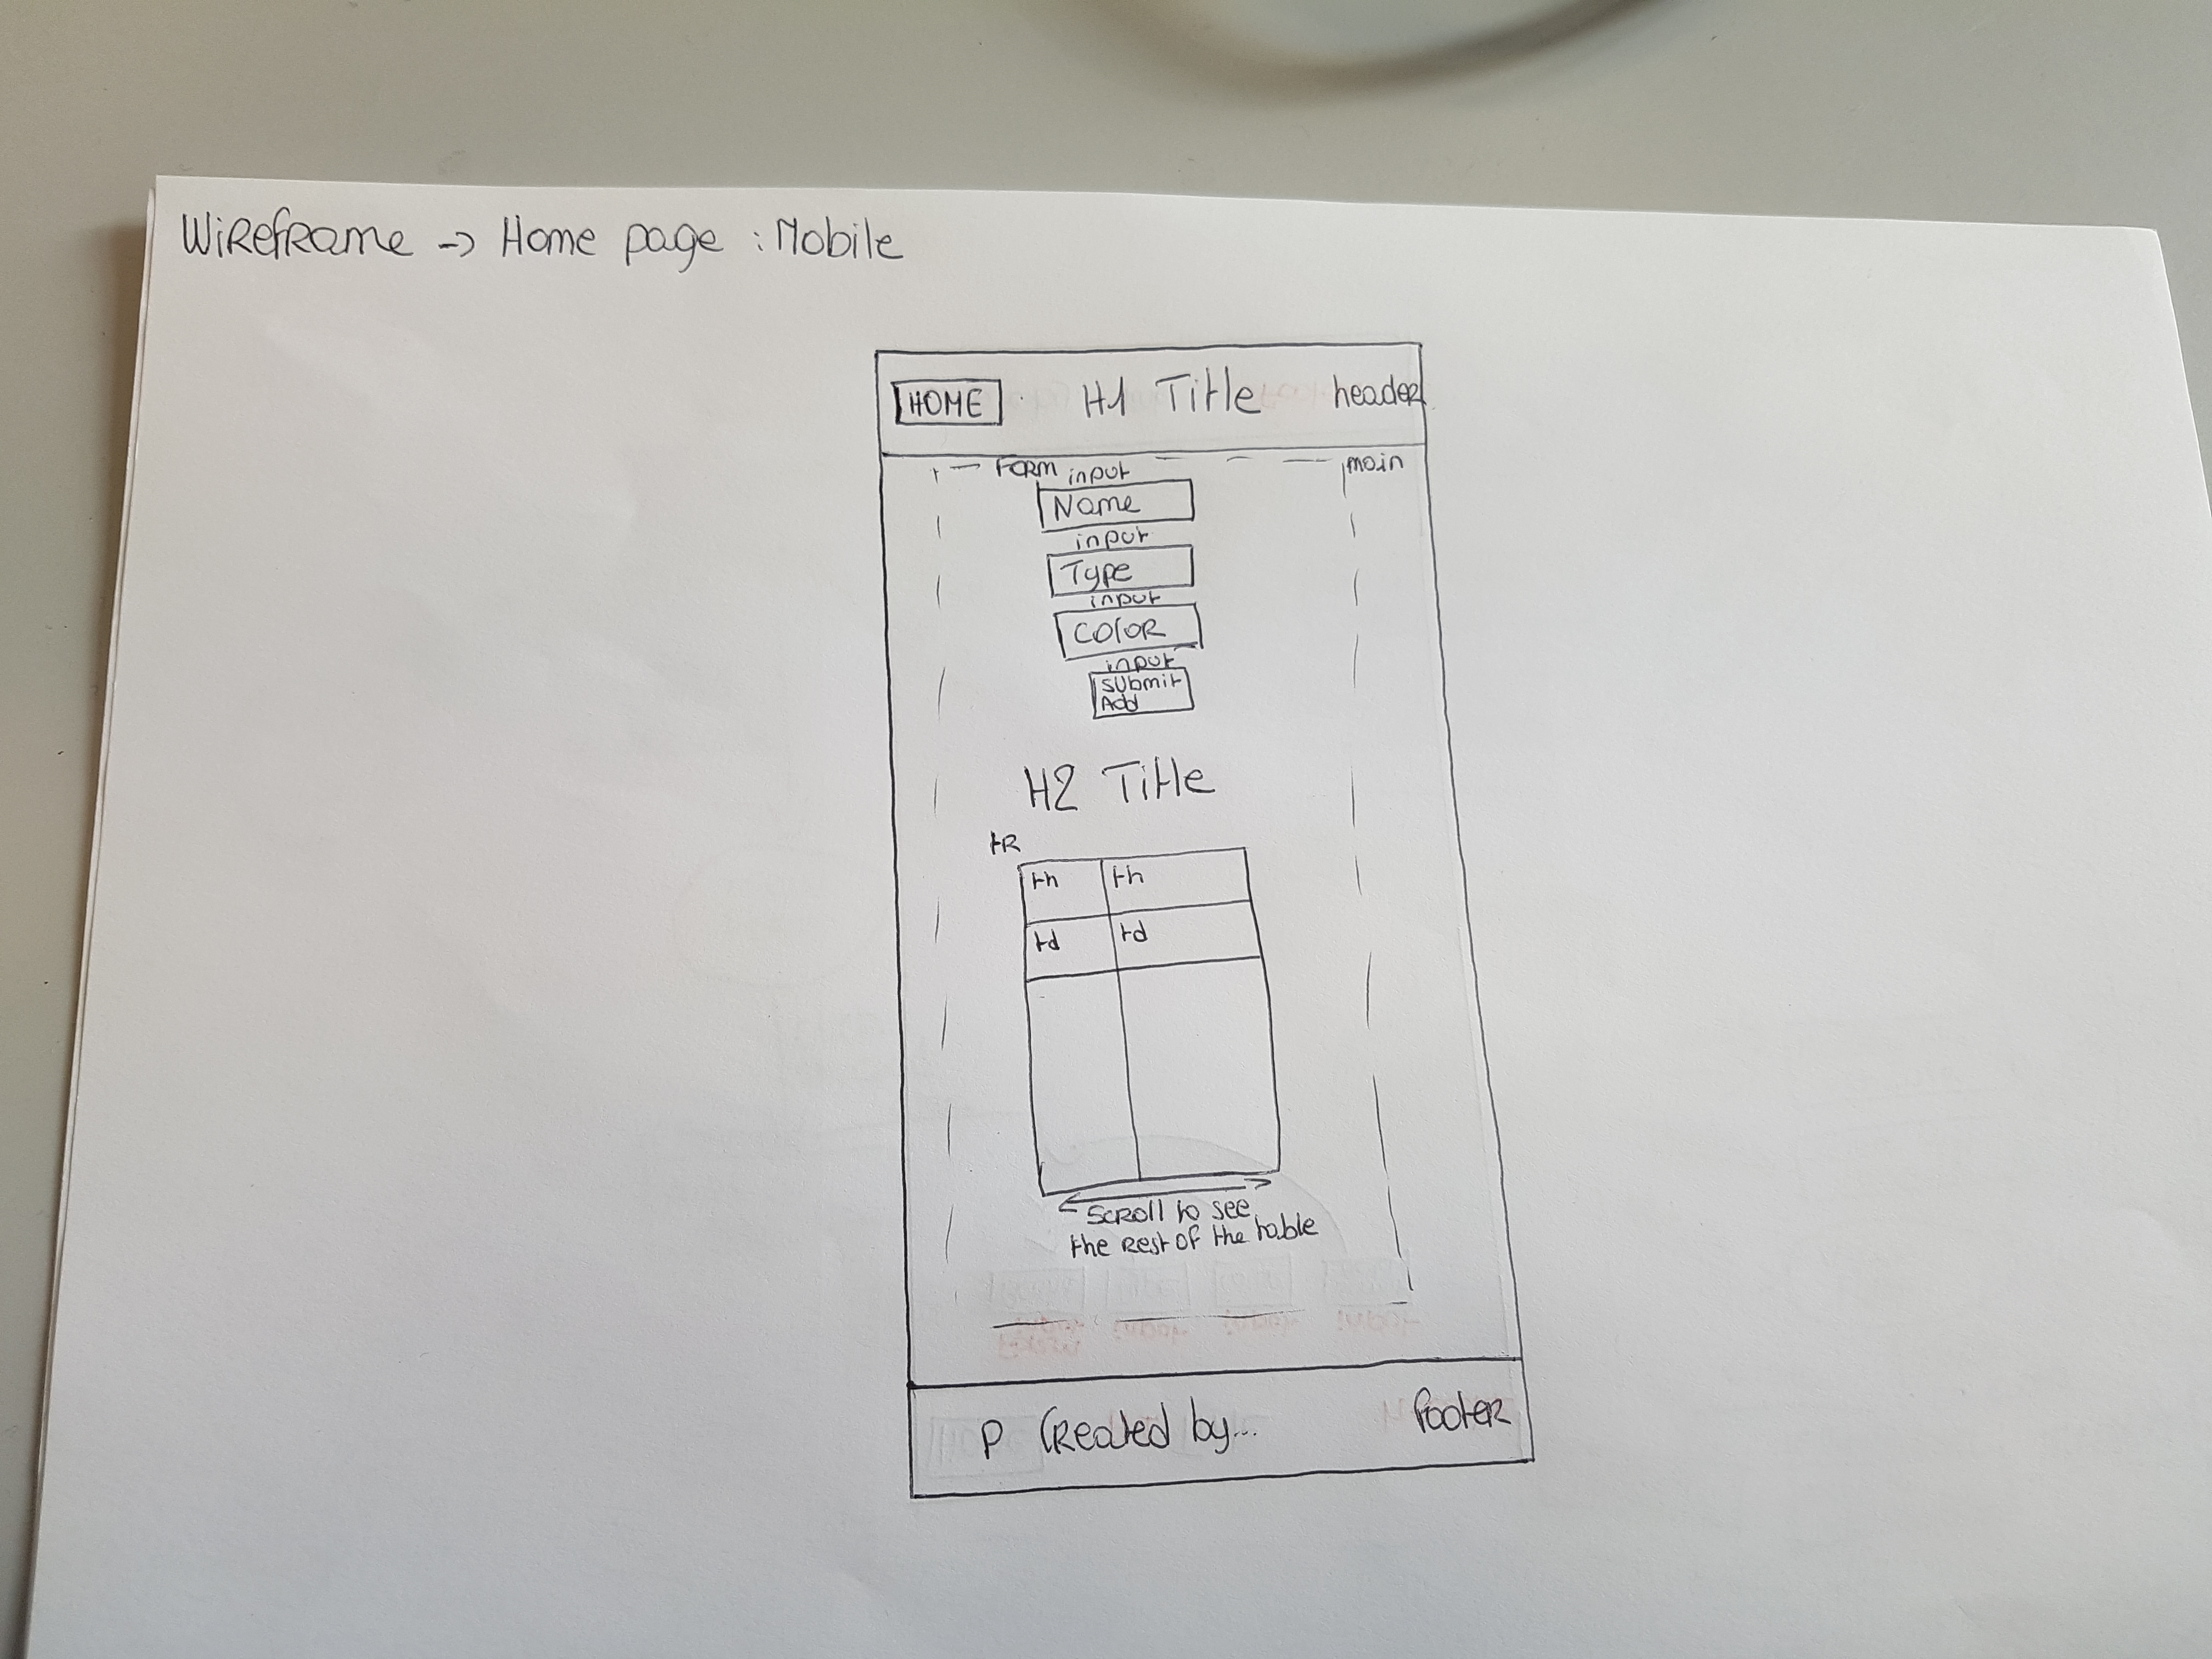 Wireframe -> Home page : Mobile
HOME H1 Title header
FORM input main
Name
input
Type
input
Color
input
Submit
Add
H2 Title
tR
th th
td td
Scroll to see
the Rest of the table
P Created by... footer